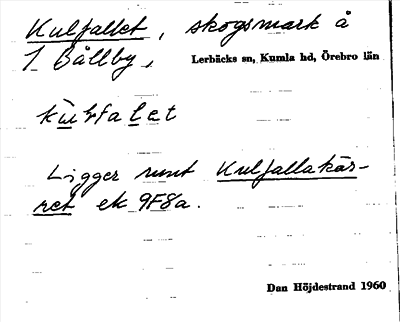 Kulfallet, skogsmark å
1 Bållby, Lerbäcks sn, Kumla hd, Örebro län
Ligger runt Kulfallakär-
ret ek 9F8a.
Dan Höjdestrand 1960